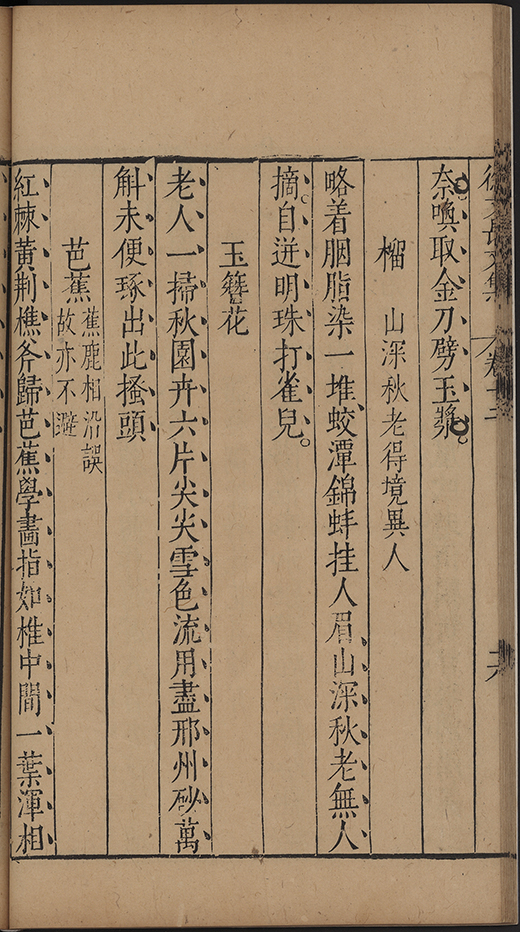 徐文長文集 卷十二
十八
奈喚取金刀劈玉漿
榴 山深秋老得境異人
略着胭脂染一堆蛟潭錦蚌挂人眉山深秋老無人
摘自迸明珠打雀兒
玉簪花
老人一掃秋園卉六片尖尖雪色流用盡邢州砂萬
斛未便琢出此搔頭
芭蕉 蕉鹿相沿誤
故亦不避
紅棘黄荆樵斧歸芭蕉學畵指如椎中間一葉渾相